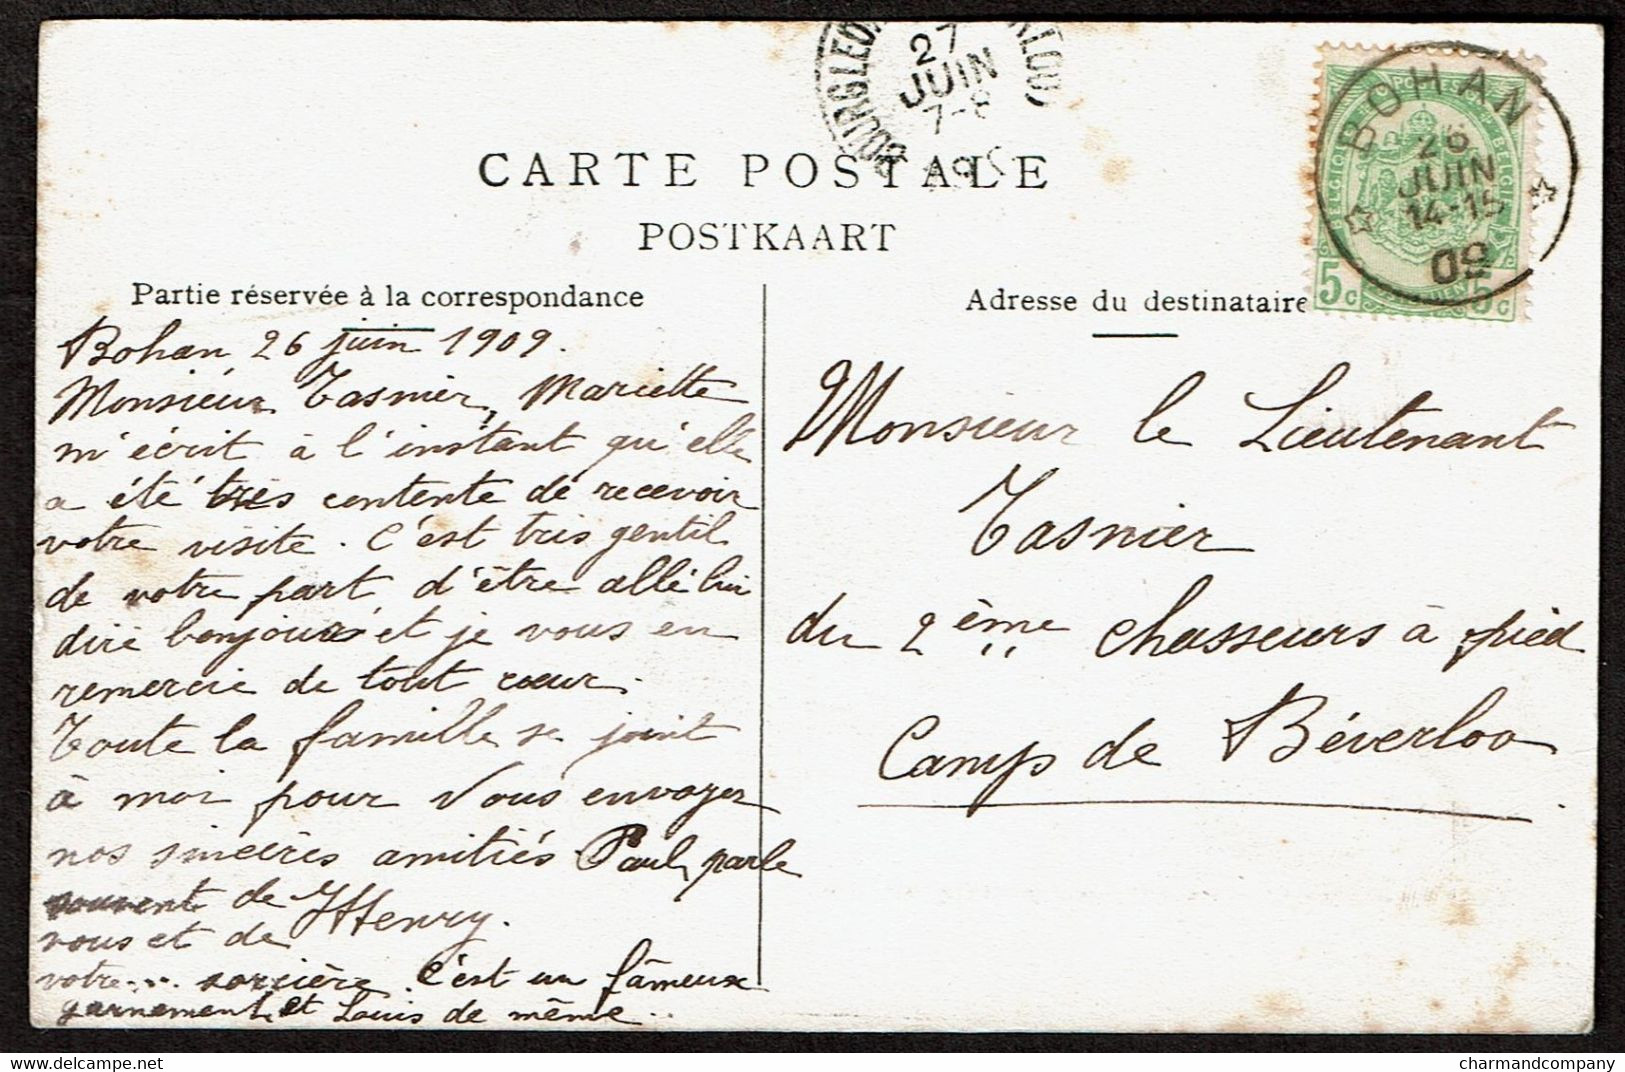 27
JUIN
7-8
CARTE POSTALE
POSTKAART
BOHAN
26
JUIN
14-15
09
BELGIQUE
BELGIE
5c 5c
Partie réservée à la correspondance
Adresse du destinataire
Bohan 26 juin 1909.
Monsieur Tasnier, Mariette
m'écrit à l'instant qu'elle
a été très contente de recevoir
votre visite. C'est très gentil
de votre part d'être allé lui
dire bonjour et je vous en
remercie de tout cœur.
Toute la famille se joint
à moi pour vous envoyer
nos sincères amitiés. Paul, parle
souvent de
vous et de Henry.
votre... sorcière. C'est un fâmeux
garnement, et Louis de même..
Monsieur le Lieutenant
Tasnier
du 2ème chasseurs à pied
Camp de Béverloo
charmandcompany